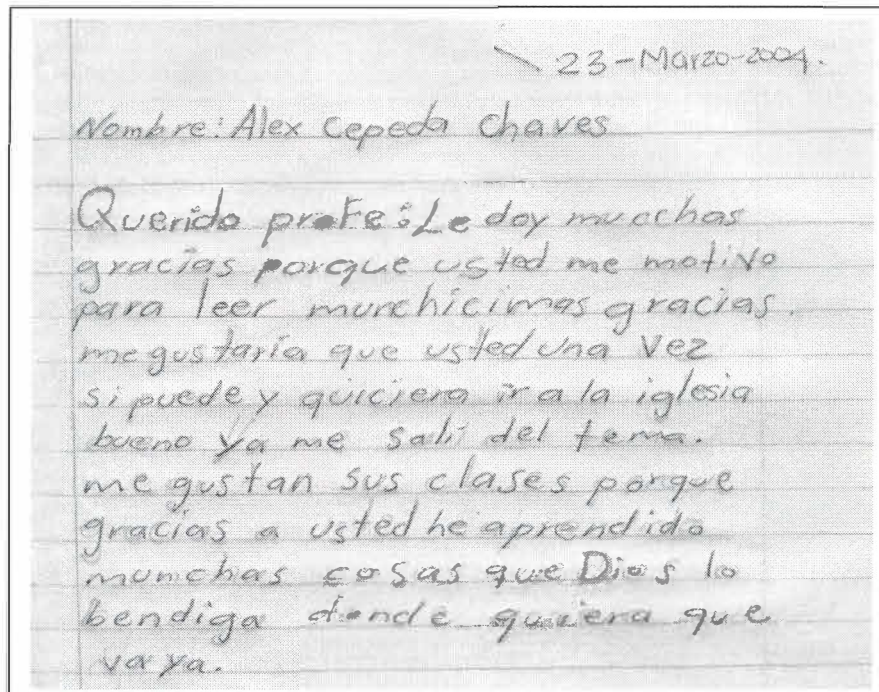 23-Marzo-2004.
Nombre: Alex Cepeda Chaves
Querido profe: Le doy muochas
gracias porque usted me motivo
para leer munchicimas gracias.
me gustaría que usted una vez
si puede y quiciera ir a la iglesia
bueno ya me salí del tema.
me gustan sus clases porque
gracias a usted he aprendido
munchas cosas que Dios lo
bendiga donde quiera que
vaya.